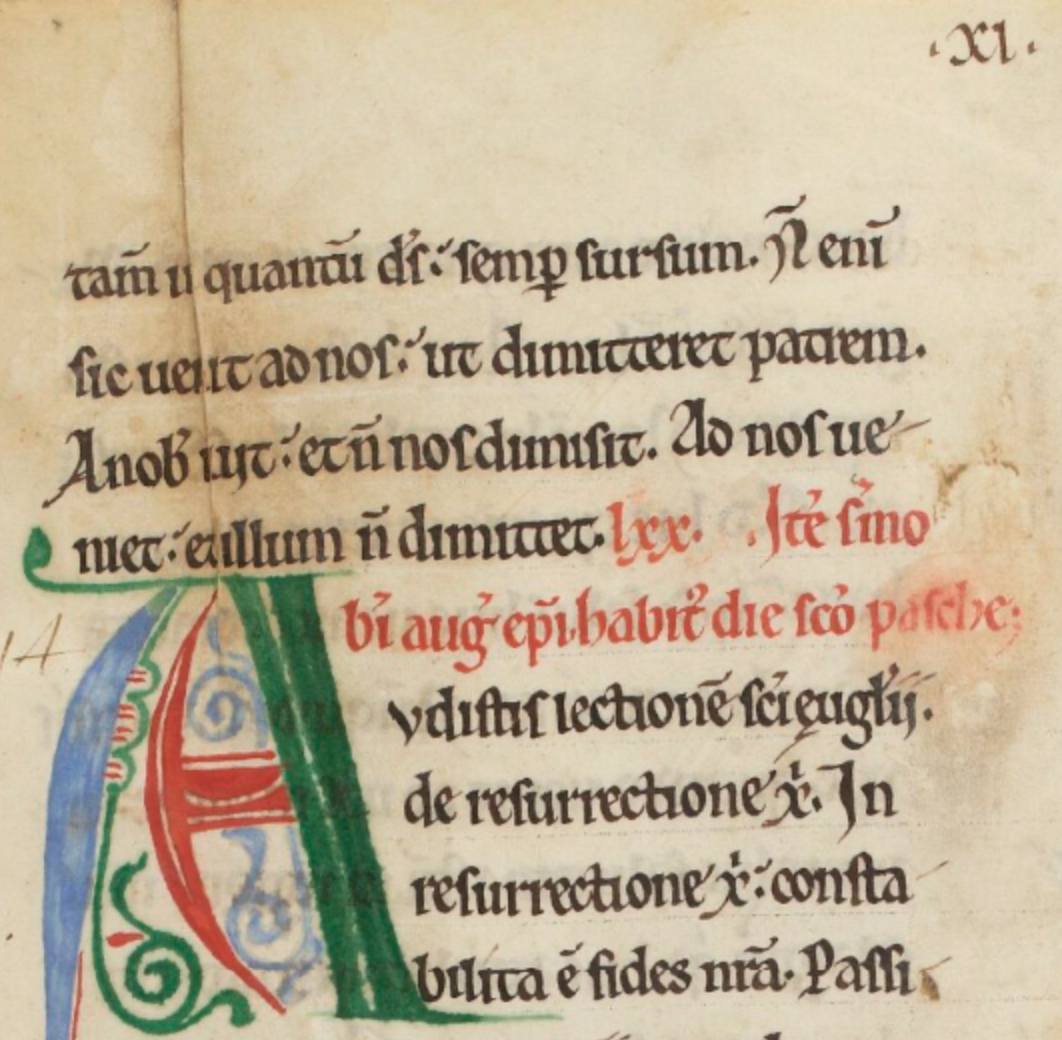 ·XI·
tam̄ ū quantū d̓s:́ semꝑ sursum. N̄ enī
sic uenit ad nos:́ ut dimitteret patrem.
A nob̓ iu̓t:́ et n̄ nos dimisit. Ad nos ue-
niet:́ et illum n̄ dimittet. lxx. .Itē s̓mo
bī aug̓ ep̄i. habit᷒ die sc̓o pasche;
14
Vdistis lectionē sc̄i ęug̓lij.
de resurrectione x̓. In
resurrectione x̓:́ consta
bilita ē fides nr̄a. Passi